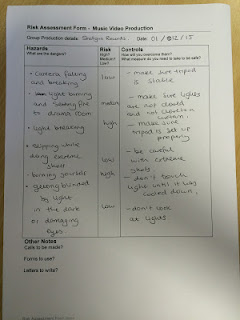 Risk Assessment Form - Music Video Production
Group Production details: Records. Date: 01/12/15
Hazards
What are the dangers?
Risk
High?
Medium?
Low?
Controls
How will you overcome them?
What measure do you need to take to be safe?
- Camera falling
and breaking
low
- make sure tripod is
stable
- light burning
and setting fire
to drama room.
medium
- make sure lights
are not closed
and not close to
curtain.
- light breaking
high
- make sure
tripod is set up
properly
- slipping while
doing extreme
shot
low
- be careful
with extreme
shots
- burning yourself
high
- don't touch
light until it has
cooled down.
- getting blinded
by light
in the dark
or damaging
eyes.
low
- don't look
at lights.
Other Notes
Calls to be made?
Forms to use?
Letters to write?
Risk Assessment Form